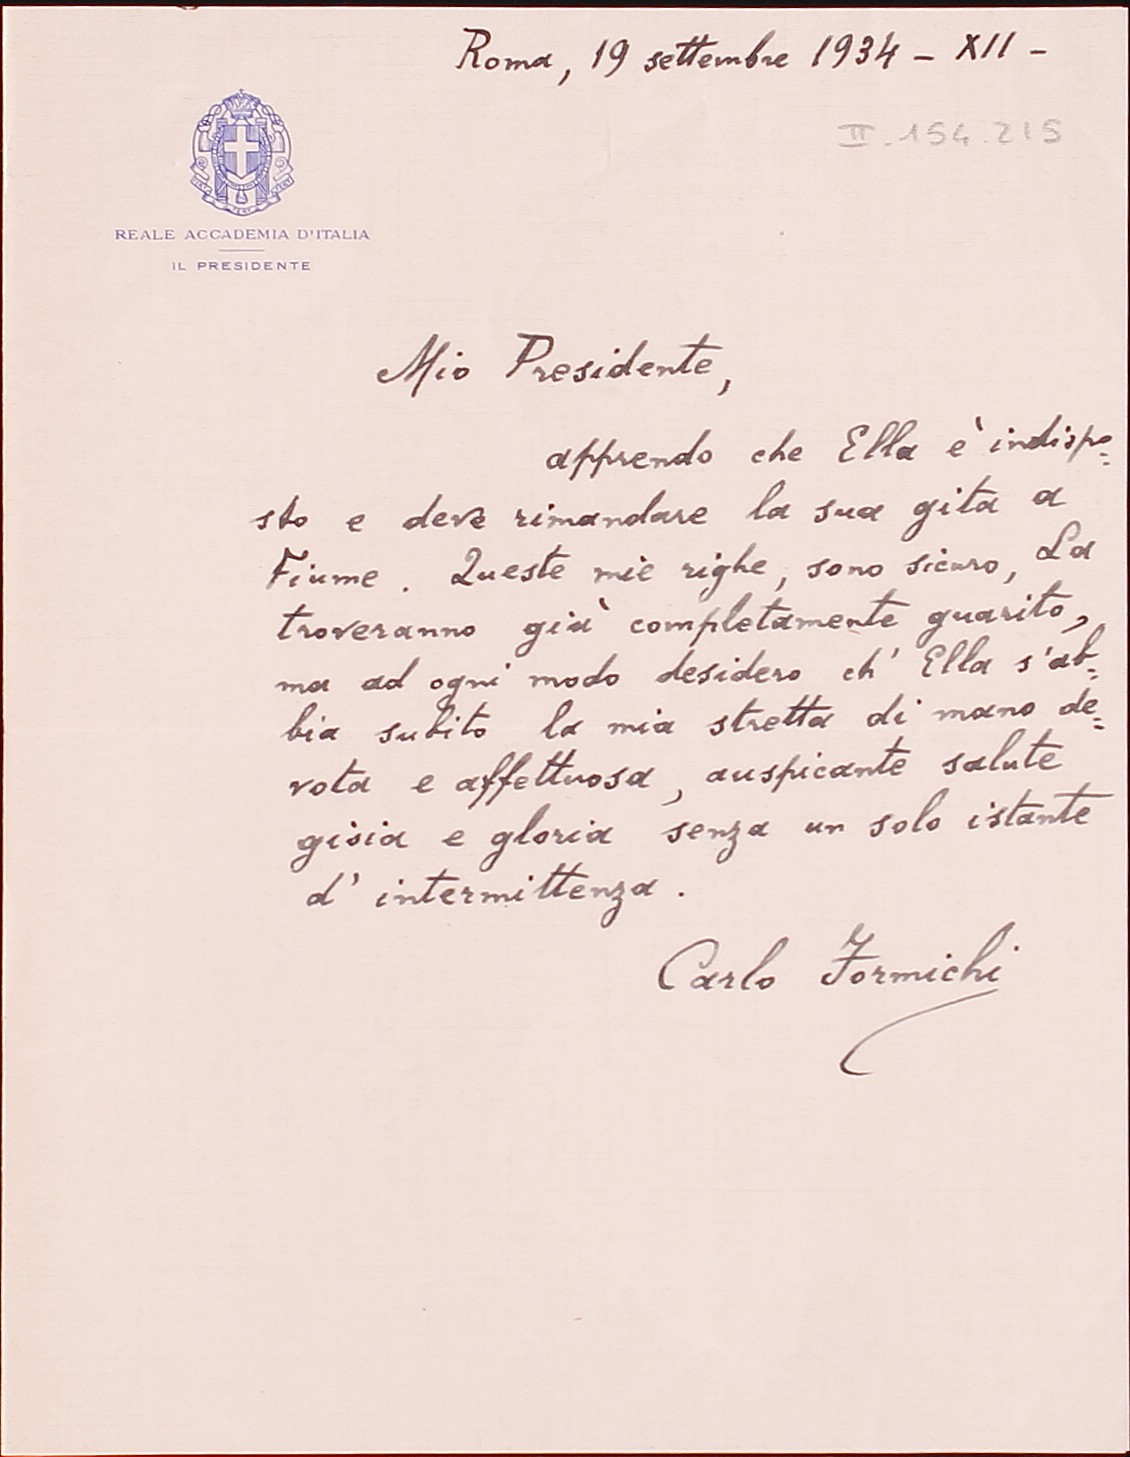 Roma, 19 settembre 1934 - XII -
II. 154. 215
REALE ACCADEMIA D'ITALIA
IL PRESIDENTE
Mio Presidente,
apprendo che Ella è indispo=
sto e deve rimandare la sua gita a
Fiume. Queste mie righe, sono sicuro, La
troveranno già completamente guarito,
ma ad ogni modo desidero ch' Ella s'ab=
bia subito la mia stretta di mano de=
vota e affettuosa, auspicante salute
gioia e gloria senza un solo istante
d' intermittenza.
Carlo Formichi